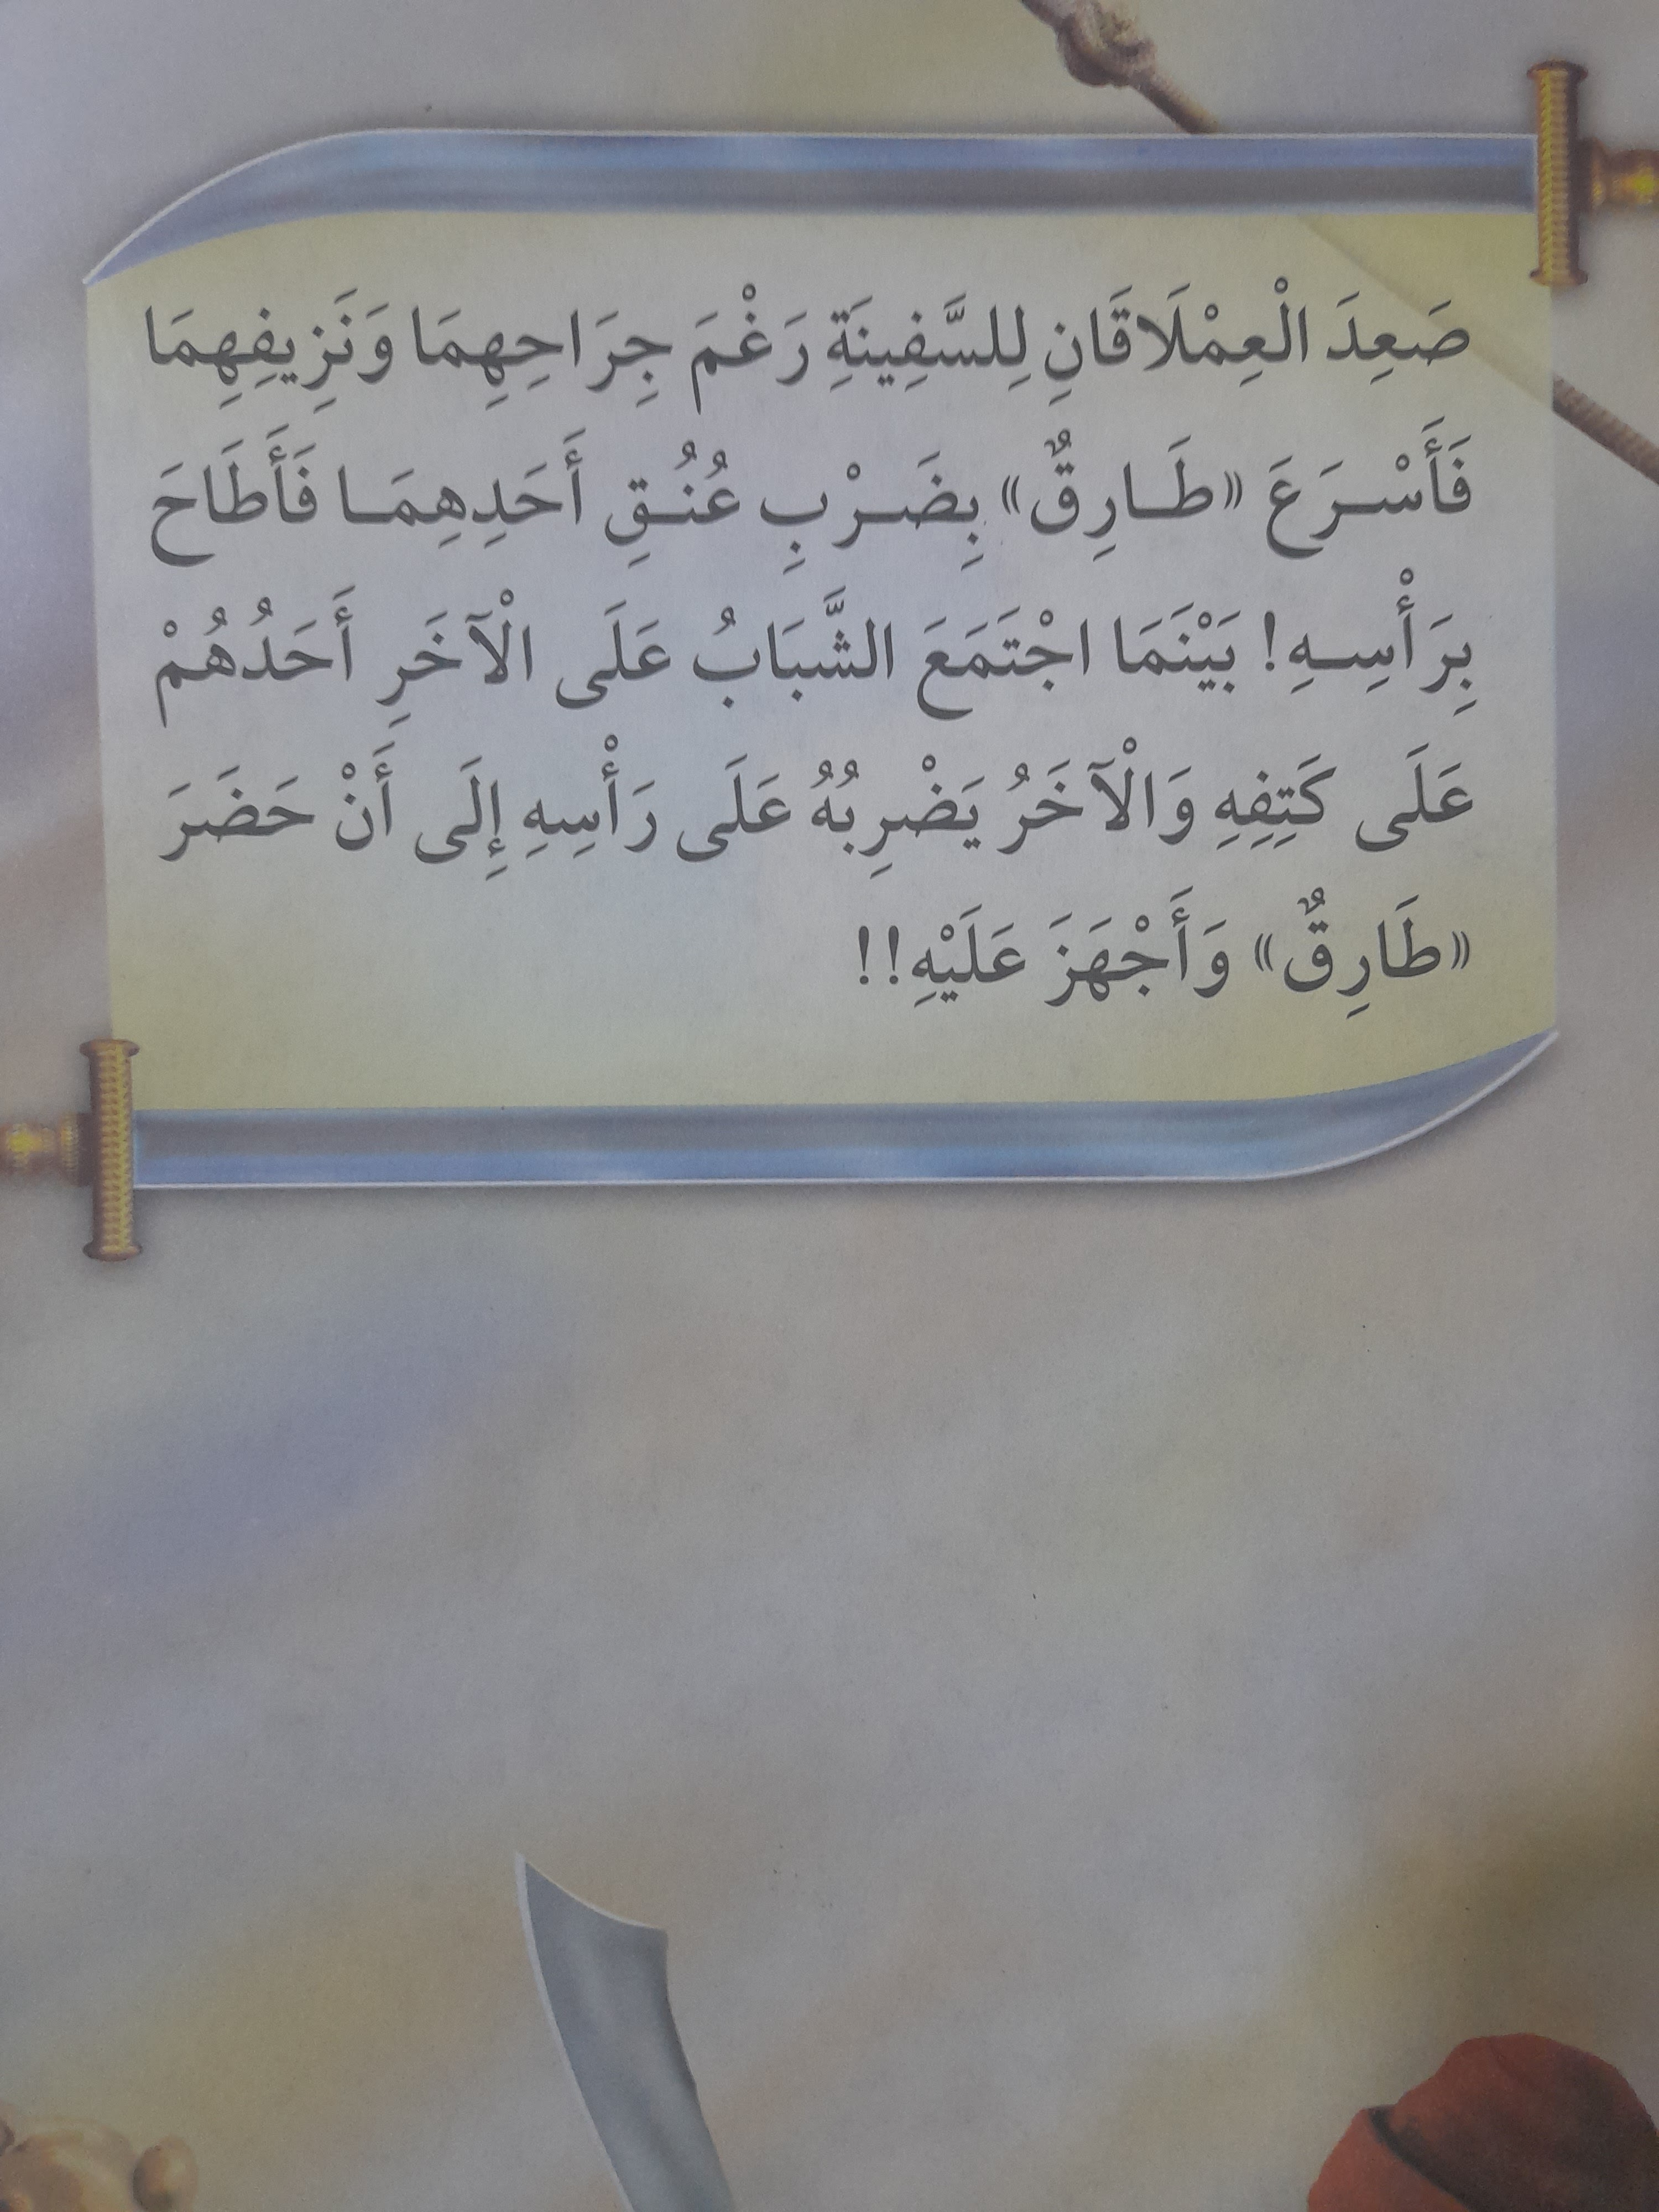 صَعِدَ الْعِمْلَاقَانِ لِلسَّفِينَةِ رَغْمَ جِرَاحِهِمَا وَنَزِيفِهِمَا
فَأَسْرَعَ «طَارِقٌ» بِضَرْبِ عُنُقِ أَحَدِهِمَا فَأَطَاحَ
بِرَأْسِهِ! بَيْنَمَا اجْتَمَعَ الشَّبَابُ عَلَى الْآخَرِ أَحَدُهُمْ
عَلَى كَتِفِهِ وَالْآخَرُ يَضْرِبُهُ عَلَى رَأْسِهِ إِلَى أَنْ حَضَرَ
«طَارِقٌ» وَأَجْهَزَ عَلَيْهِ!!